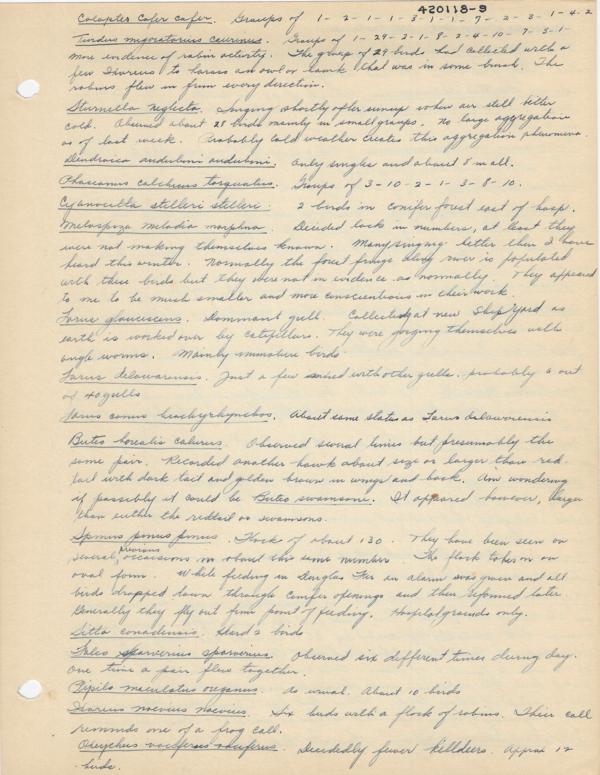 420118-9
Colaptes Cafer cafer. Groups of 1-2-1-1-3-1-1-7-2-3-1-4-2
Turdus migratorius caurinus. Groups of 1-29-3-1-8-2-4-10-7-3-1-
more evidence of robin activity. The group of 29 birds had collected with a
few Ixoreus to harass an owl or hawk that was in some brush. The
robins flew in from every direction.
Sturnella neglecta. Singing shortly after sunup when air still bitter
cold. Observed about 28 birds mainly in small groups. No large aggregation
as of last week. Probably cold weather creates this aggregation phenomena.
Dendroica auduboni auduboni. Only singles and about 8 in all.
Phasianus colchicus torquatus. Groups of 3-10-2-1-3-8-10.
Cyanocitta stelleri stelleri. 2 birds in conifer forest east of hosp.
Melospiza melodia morphna. Decided lack in numbers, at least they
were not making themselves known. Many singing better than I have
heard this winter. Normally the forest fringe along river is populated
with these birds but they were not in evidence as normally. They appeared
to me to be much smaller and more conscientious in their work.
Larus glaucescens. Dominant gull. Collected at new Ship Yard as
earth is worked over by catepillars. They were gorging themselves with
angle worms. Mainly immature birds.
Larus delawarensis. Just a few mixed with other gulls. probably 6 out
of 40 gulls
Larus canus brachyrhynchos. About same status as Larus delawarensis
Buteo borealis calurus. Observed several times but presumably the
same pair. Recorded another hawk about size or larger than red-
tail with dark tail and golden brown in wings and back. Am wondering
if possibly it could be Buteo swansoni. It appeared however, larger
than either the redtail or swansons.
Spinus pinus pinus. Flock of about 130. They have been seen on
several previous occasions in about this same number. The flock takes on an
oval form. While feeding in Douglas Fir an alarm was given and all
birds dropped down through conifer openings and then reformed later.
Generally they fly out from point of feeding. Hospital grounds only.
Sitta canadensis. Heard 2 birds
Falco sparverius sparverius. Observed six different times during day.
One time a pair flew together.
Pipilo maculatus oreganus. As usual. About 10 birds
Ixoreus naevius naevius. Six birds with a flock of robins. Their call
reminds one of a frog call.
Oxyechus vociferus vociferus. Decidedly fewer killdeers. Approx 12
birds.